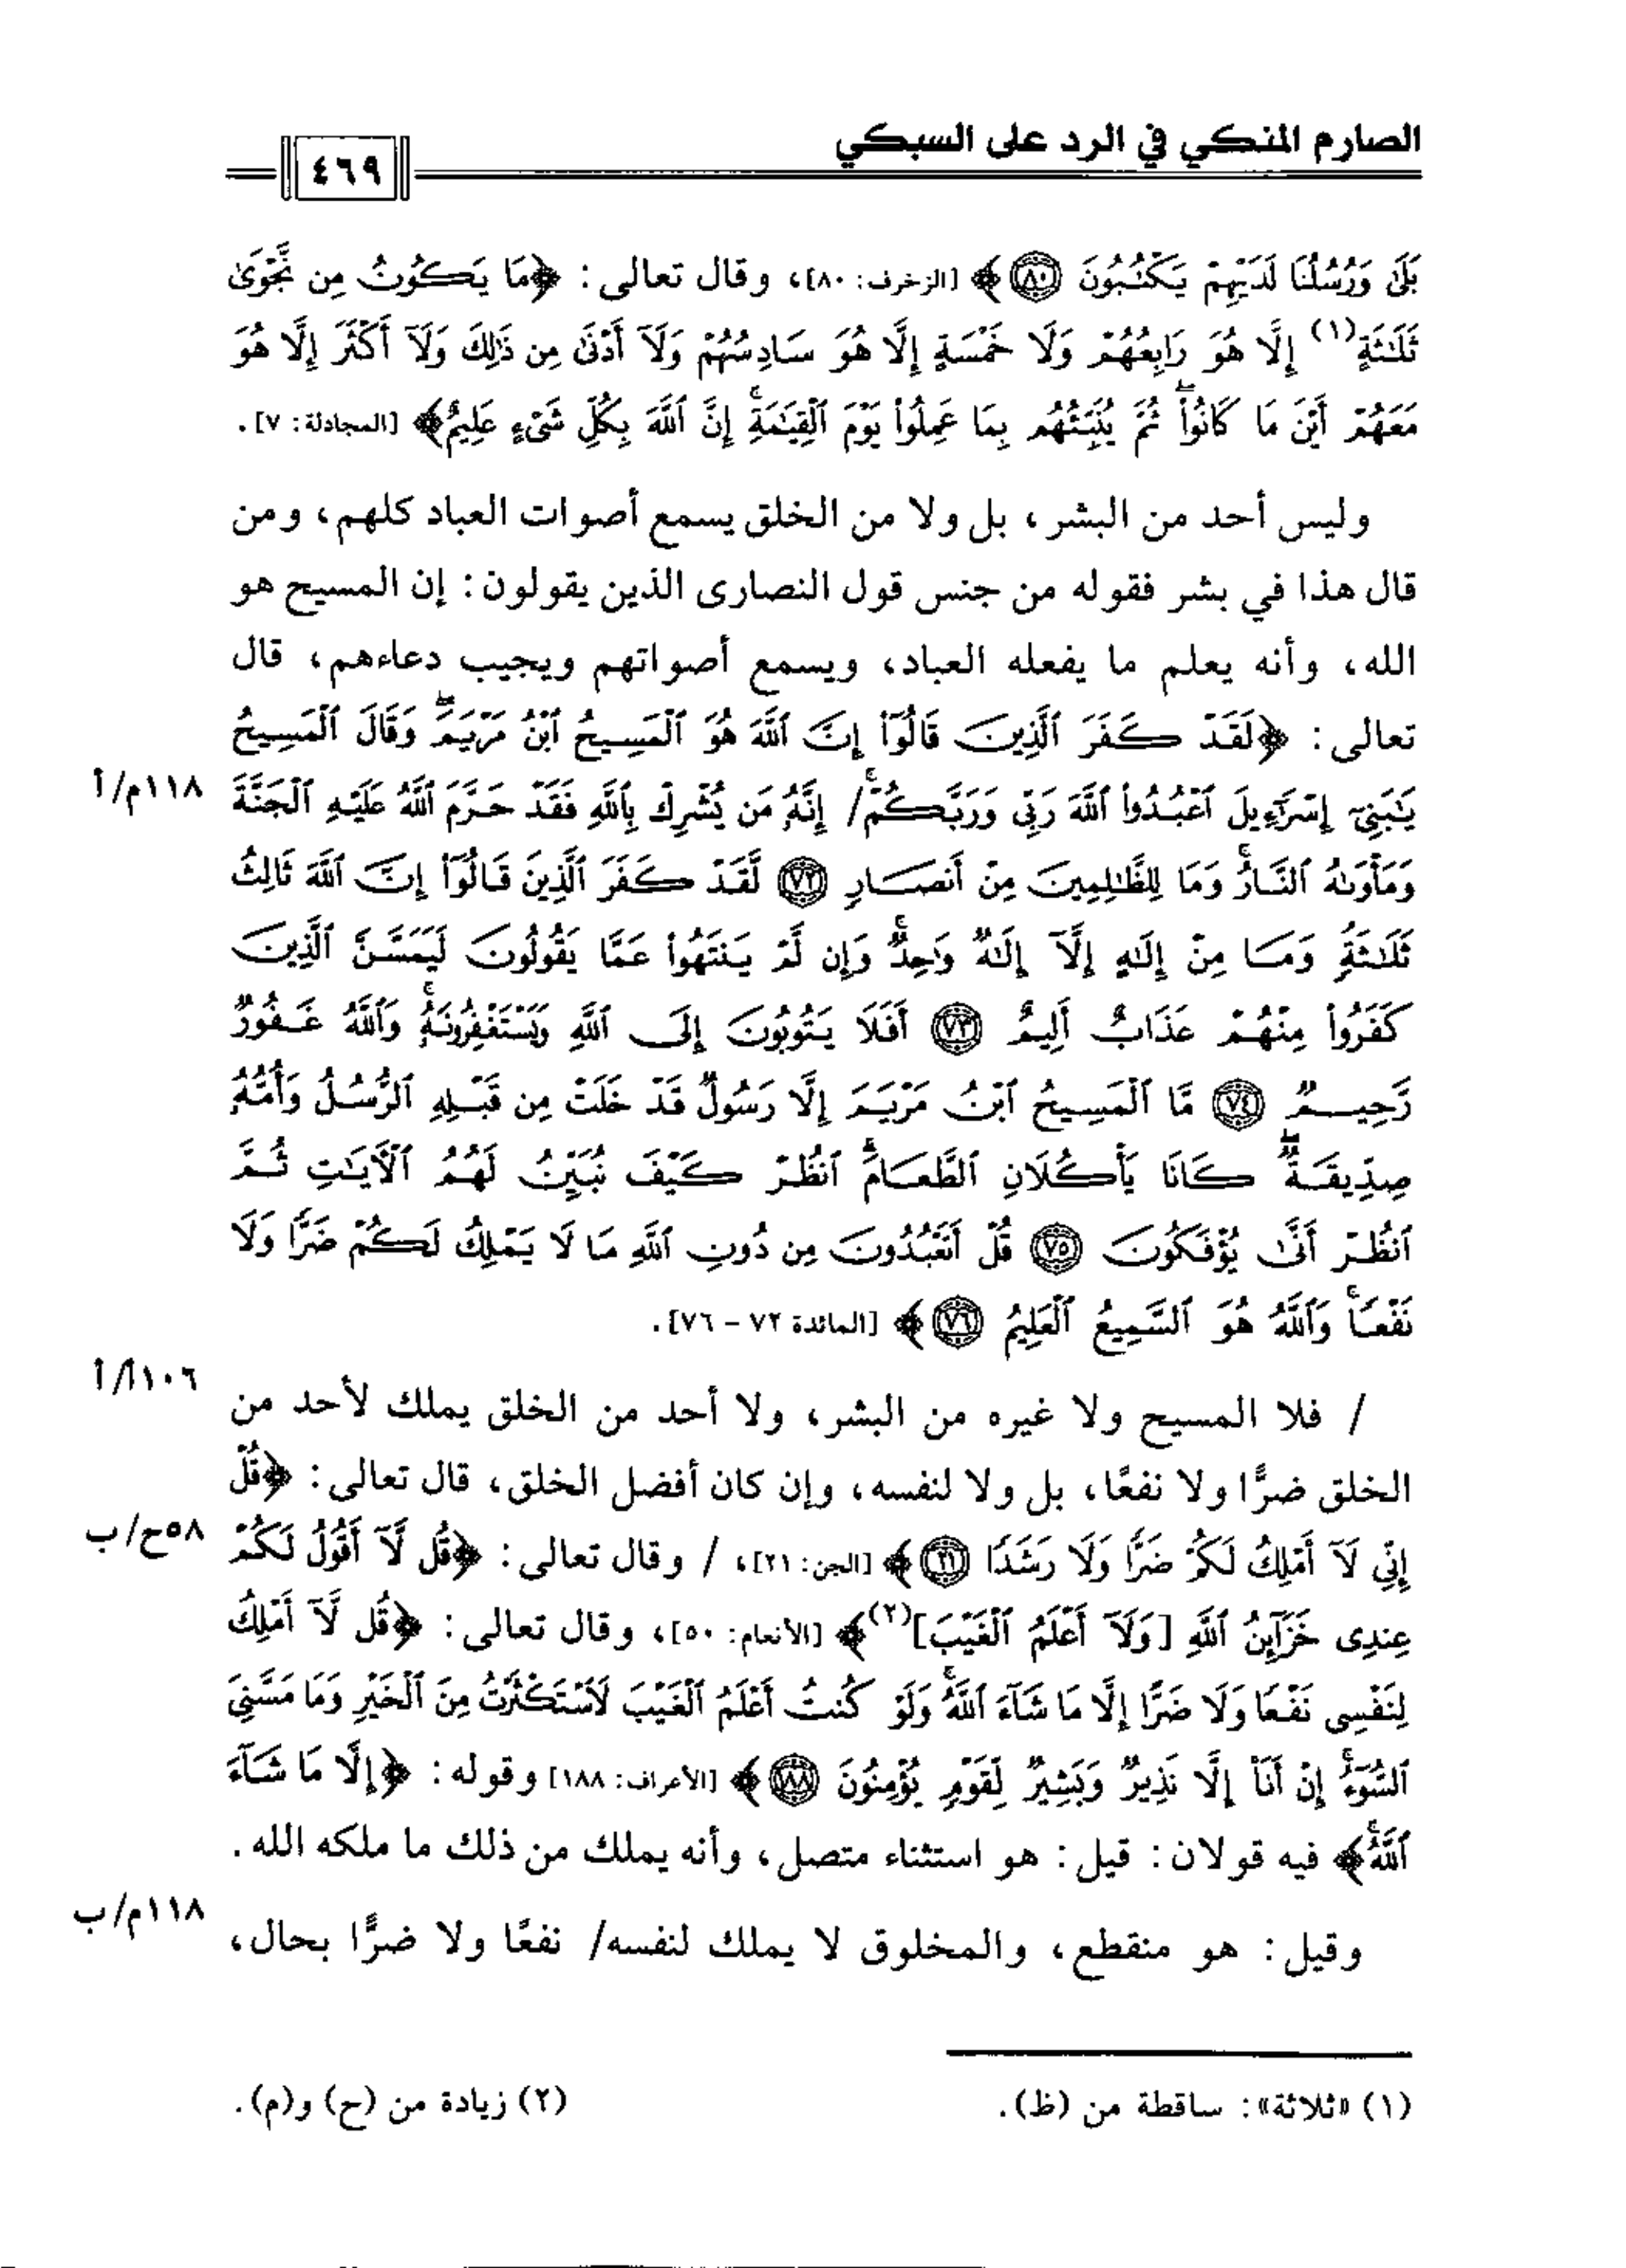 الصارم المنكي في الرد على السبكي
٤٦٩
بَلَىٰ وَرُسُلُنَا لَدَيْهِمْ يَكْتُبُونَ ﴿٨٠﴾﴾ [الزخرف: ٨٠]، وقال تعالى: ﴿مَا يَكُونُ مِن نَّجْوَىٰ
ثَلَٰثَةٍ(١) إِلَّا هُوَ رَابِعُهُمْ وَلَا خَمْسَةٍ إِلَّا هُوَ سَادِسُهُمْ وَلَآ أَدْنَىٰ مِن ذَٰلِكَ وَلَآ أَكْثَرَ إِلَّا هُوَ
مَعَهُمْ أَيْنَ مَا كَانُوا۟ ۖ ثُمَّ يُنَبِّئُهُم بِمَا عَمِلُوا۟ يَوْمَ ٱلْقِيَٰمَةِ ۚ إِنَّ ٱللَّهَ بِكُلِّ شَىْءٍ عَلِيمٌ﴾ [المجادلة: ٧].
وليس أحد من البشر، بل ولا من الخلق يسمع أصوات العباد كلهم، ومن
قال هذا في بشر فقوله من جنس قول النصارى الذين يقولون: إن المسيح هو
الله، وأنه يعلم ما يفعله العباد، ويسمع أصواتهم ويجيب دعاءهم، قال
تعالى: ﴿لَقَدْ كَفَرَ ٱلَّذِينَ قَالُوٓا۟ إِنَّ ٱللَّهَ هُوَ ٱلْمَسِيحُ ٱبْنُ مَرْيَمَ ۖ وَقَالَ ٱلْمَسِيحُ
يَٰبَنِىٓ إِسْرَٰٓءِيلَ ٱعْبُدُوا۟ ٱللَّهَ رَبِّى وَرَبَّكُمْ ۚ/ إِنَّهُۥ مَن يُشْرِكْ بِٱللَّهِ فَقَدْ حَرَّمَ ٱللَّهُ عَلَيْهِ ٱلْجَنَّةَ
١١٨م/أ
وَمَأْوَىٰهُ ٱلنَّارُ ۖ وَمَا لِلظَّٰلِمِينَ مِنْ أَنصَارٍ ﴿٧٢﴾ لَّقَدْ كَفَرَ ٱلَّذِينَ قَالُوٓا۟ إِنَّ ٱللَّهَ ثَالِثُ
ثَلَٰثَةٍ وَمَا مِنْ إِلَٰهٍ إِلَّآ إِلَٰهٌ وَٰحِدٌ ۚ وَإِن لَّمْ يَنتَهُوا۟ عَمَّا يَقُولُونَ لَيَمَسَّنَّ ٱلَّذِينَ
كَفَرُوا۟ مِنْهُمْ عَذَابٌ أَلِيمٌ ﴿٧٣﴾ أَفَلَا يَتُوبُونَ إِلَى ٱللَّهِ وَيَسْتَغْفِرُونَهُۥ ۚ وَٱللَّهُ غَفُورٌ
رَّحِيمٌ ﴿٧٤﴾ مَّا ٱلْمَسِيحُ ٱبْنُ مَرْيَمَ إِلَّا رَسُولٌ قَدْ خَلَتْ مِن قَبْلِهِ ٱلرُّسُلُ وَأُمُّهُۥ
صِدِّيقَةٌ ۖ كَانَا يَأْكُلَانِ ٱلطَّعَامَ ۗ ٱنظُرْ كَيْفَ نُبَيِّنُ لَهُمُ ٱلْءَايَٰتِ ثُمَّ
ٱنظُرْ أَنَّىٰ يُؤْفَكُونَ ﴿٧٥﴾ قُلْ أَتَعْبُدُونَ مِن دُونِ ٱللَّهِ مَا لَا يَمْلِكُ لَكُمْ ضَرًّا وَلَا
نَفْعًا ۚ وَٱللَّهُ هُوَ ٱلسَّمِيعُ ٱلْعَلِيمُ ﴿٧٦﴾﴾ [المائدة ٧٢ – ٧٦].
/ فلا المسيح ولا غيره من البشر، ولا أحد من الخلق يملك لأحد من
١٠٦أ/أ
الخلق ضرًّا ولا نفعًا، بل ولا لنفسه، وإن كان أفضل الخلق، قال تعالى: ﴿قُلْ
إِنِّى لَآ أَمْلِكُ لَكُمْ ضَرًّا وَلَا رَشَدًا ﴿٢١﴾﴾ [الجن: ٢١]، / وقال تعالى: ﴿قُل لَّآ أَقُولُ لَكُمْ
٥٨ح/ب
عِندِى خَزَآئِنُ ٱللَّهِ [وَلَآ أَعْلَمُ ٱلْغَيْبَ](٢)﴾ [الأنعام: ٥٠]، وقال تعالى: ﴿قُل لَّآ أَمْلِكُ
لِنَفْسِى نَفْعًا وَلَا ضَرًّا إِلَّا مَا شَآءَ ٱللَّهُ ۚ وَلَوْ كُنتُ أَعْلَمُ ٱلْغَيْبَ لَٱسْتَكْثَرْتُ مِنَ ٱلْخَيْرِ وَمَا مَسَّنِىَ
ٱلسُّوٓءُ ۚ إِنْ أَنَا۠ إِلَّا نَذِيرٌ وَبَشِيرٌ لِّقَوْمٍ يُؤْمِنُونَ ﴿١٨٨﴾﴾ [الأعراف: ١٨٨] وقوله: ﴿إِلَّا مَا شَآءَ
ٱللَّهُ ۚ﴾ فيه قولان: قيل: هو استثناء متصل، وأنه يملك من ذلك ما ملكه الله.
وقيل: هو منقطع، والمخلوق لا يملك لنفسه/ نفعًا ولا ضرًّا بحال،
١١٨م/ب
(١) «ثلاثة»: ساقطة من (ظ).
(٢) زيادة من (ح) و(م).